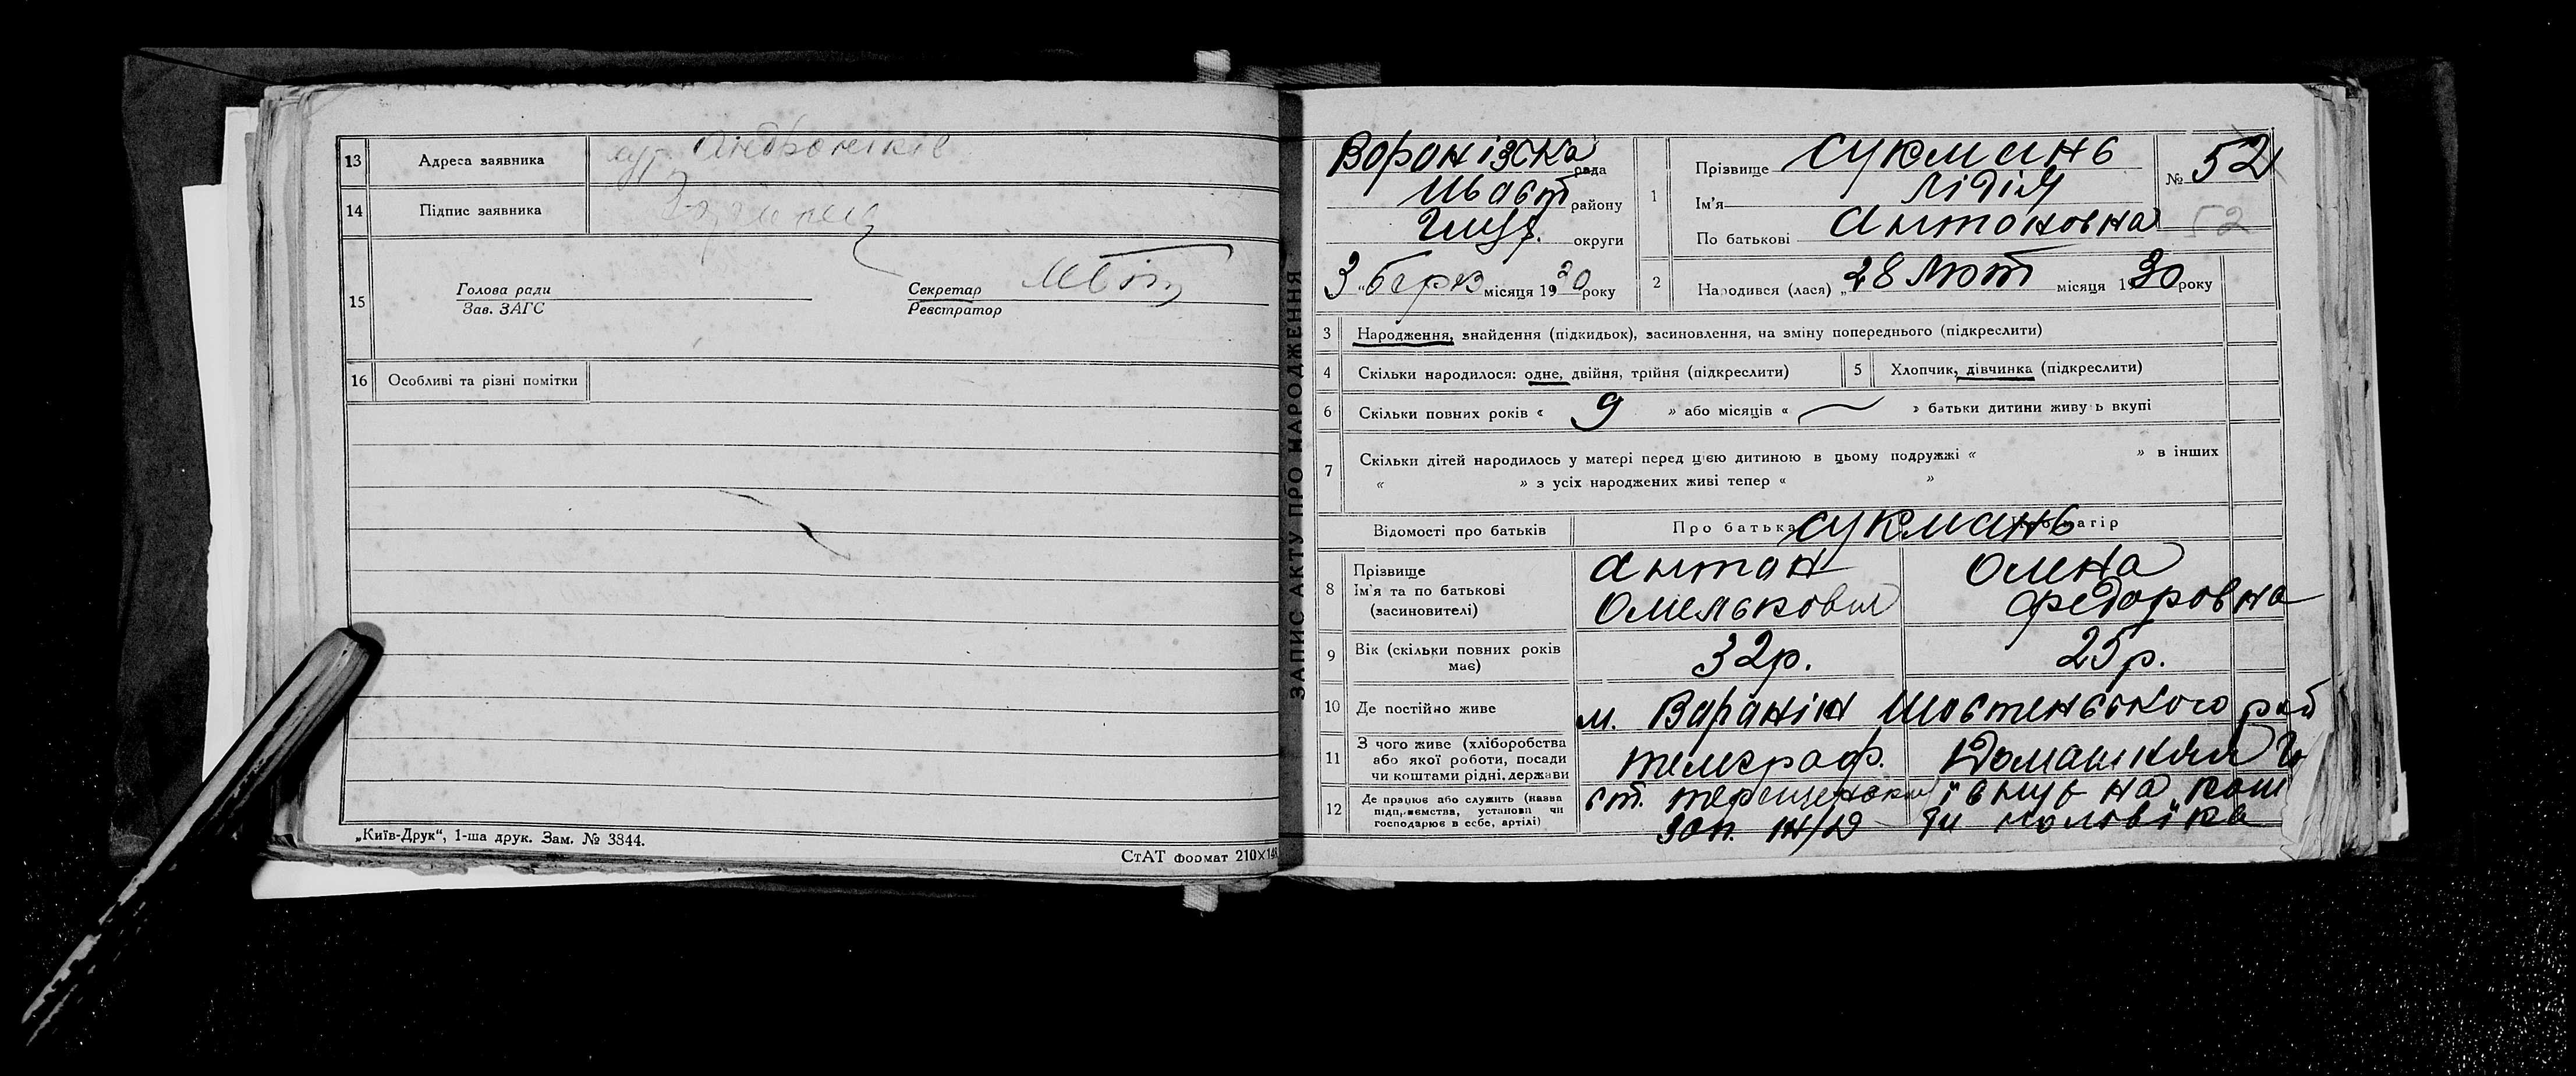 13 Адреса заявника хут. Андроніків
14 Підпис заявника
15 Голова ради
Зав. ЗАГС
Секретар
Реєстратор
16 Особливі та різні помітки
„Київ-Друк“, 1-ша друк. Зам. № 3844.
СтАТ формат 210×148
ЗАПИС АКТУ ПРО НАРОДЖЕННЯ
Воронізська рада
Шост району
Глух. округи
3 „ берез місяця 1930 року
1 Прізвище Сукмань
Ім'я Лідія
По батькові Антоновна
№ 52
52
2 Народився (лася) „ 28 Лют місяця 1930 року
3 Народження, знайдення (підкидьок), засиновлення, на зміну попереднього (підкреслити)
4 Скільки народилося: одне, двійня, трійня (підкреслити)
5 Хлопчик, дівчинка (підкреслити)
6 Скільки повних років « 9 » або місяців « — » батьки дитини живуть вкупі
7 Скільки дітей народилось у матері перед цією дитиною в цьому подружжі « » в інших
« » з усіх народжених живі тепер « »
Відомості про батьків Про батька Про матір
Сукмань
8 Прізвище
Ім'я та по батькові
(засиновителі)
Антон
Омелькович
Олена
Федоровна
9 Вік (скільки повних років
має)
32р. 25р.
10 Де постійно живе м. Вараніж Шостенського рай
11 З чого живе (хліборобства
або якої роботи, посади
чи коштами рідні, держави
телеграф. Домашняя
12 Де працює або служить (назва
підприємства, установи чи
господарює в себе, артілі)
ст. Терещенская
Зап. ж/д
на кош
ти чоловіка